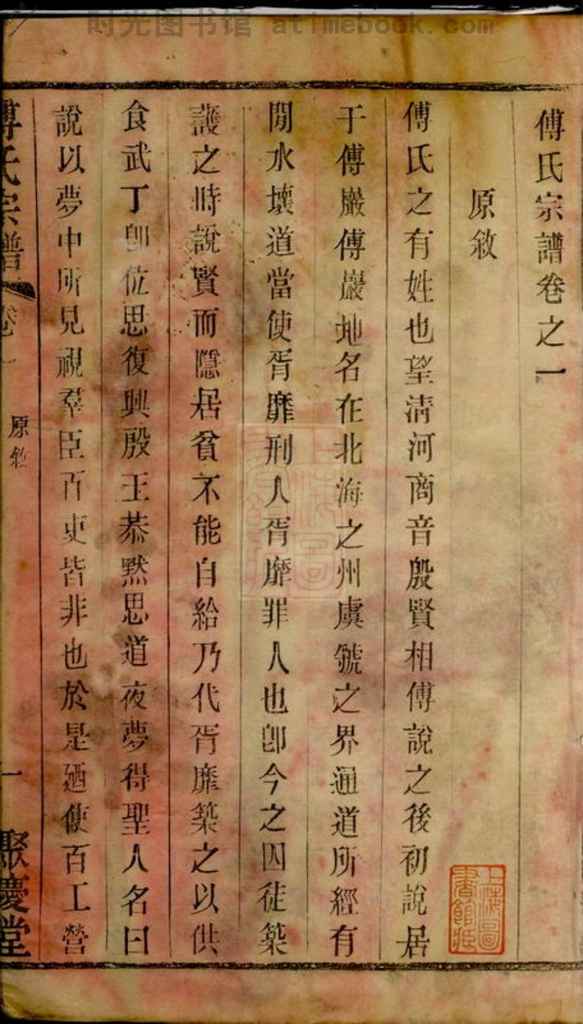 时光图书馆 atimebook.com
傅氏宗譜卷之一
原敘
傅氏之有姓也望清河商音殷賢相傅說之後初說居
于傅巖傅巖地名在北海之州虞虢之界通道所經有
閒水壞道當使胥靡刑人胥靡罪人也卽今之囚徒築
護之時說賢而隱居貧不能自給乃代胥靡築之以供
食武丁卽位思復興殷王恭黙思道夜夢得聖人名曰
說以夢中所見視羣臣百吏皆非也於是廼使百工營
傅氏宗譜
卷一
原敘
一
聚慶堂
上海圖書館藏